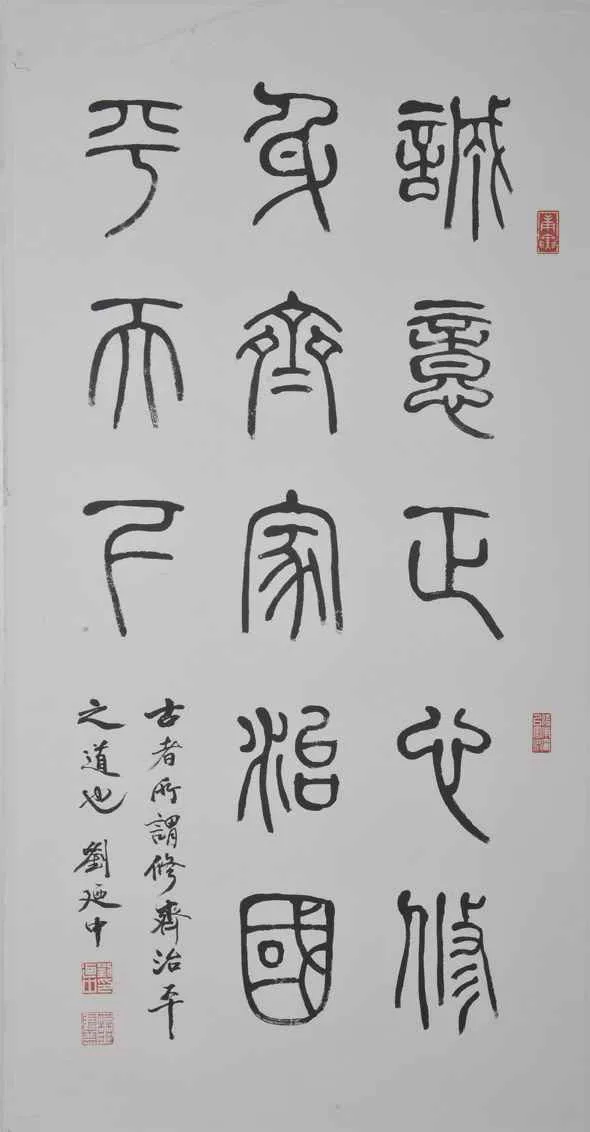 誠意正心修
身齊家治國
平天下
古者所謂修齊治平
之道也 劉延中